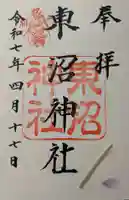 奉拝
東沼神社
東沼神社
令和七年四月十七日